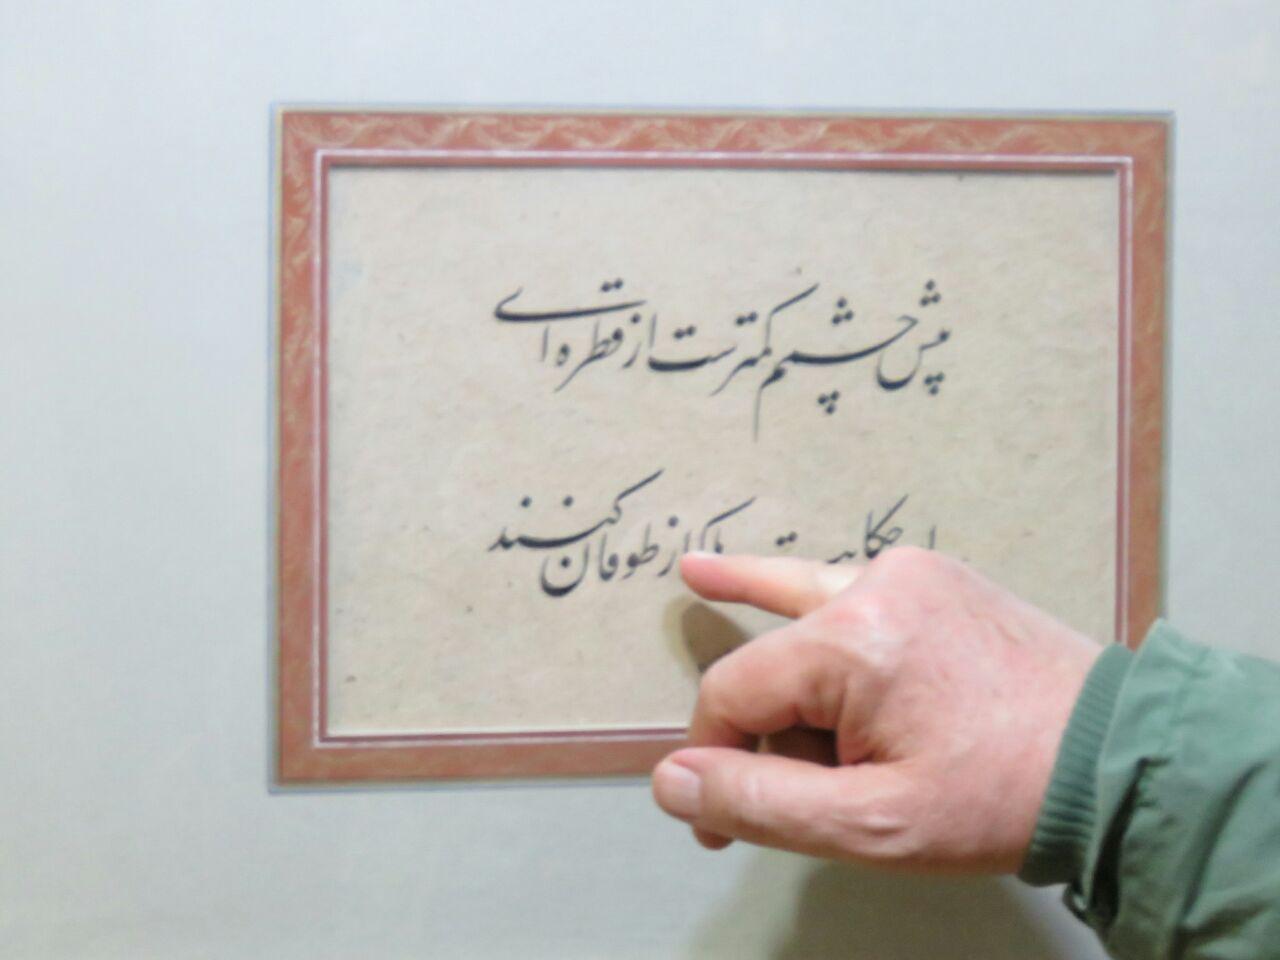 پیش چشمم کمترست از قطره ای
حکایت ها که از طوفان کنند